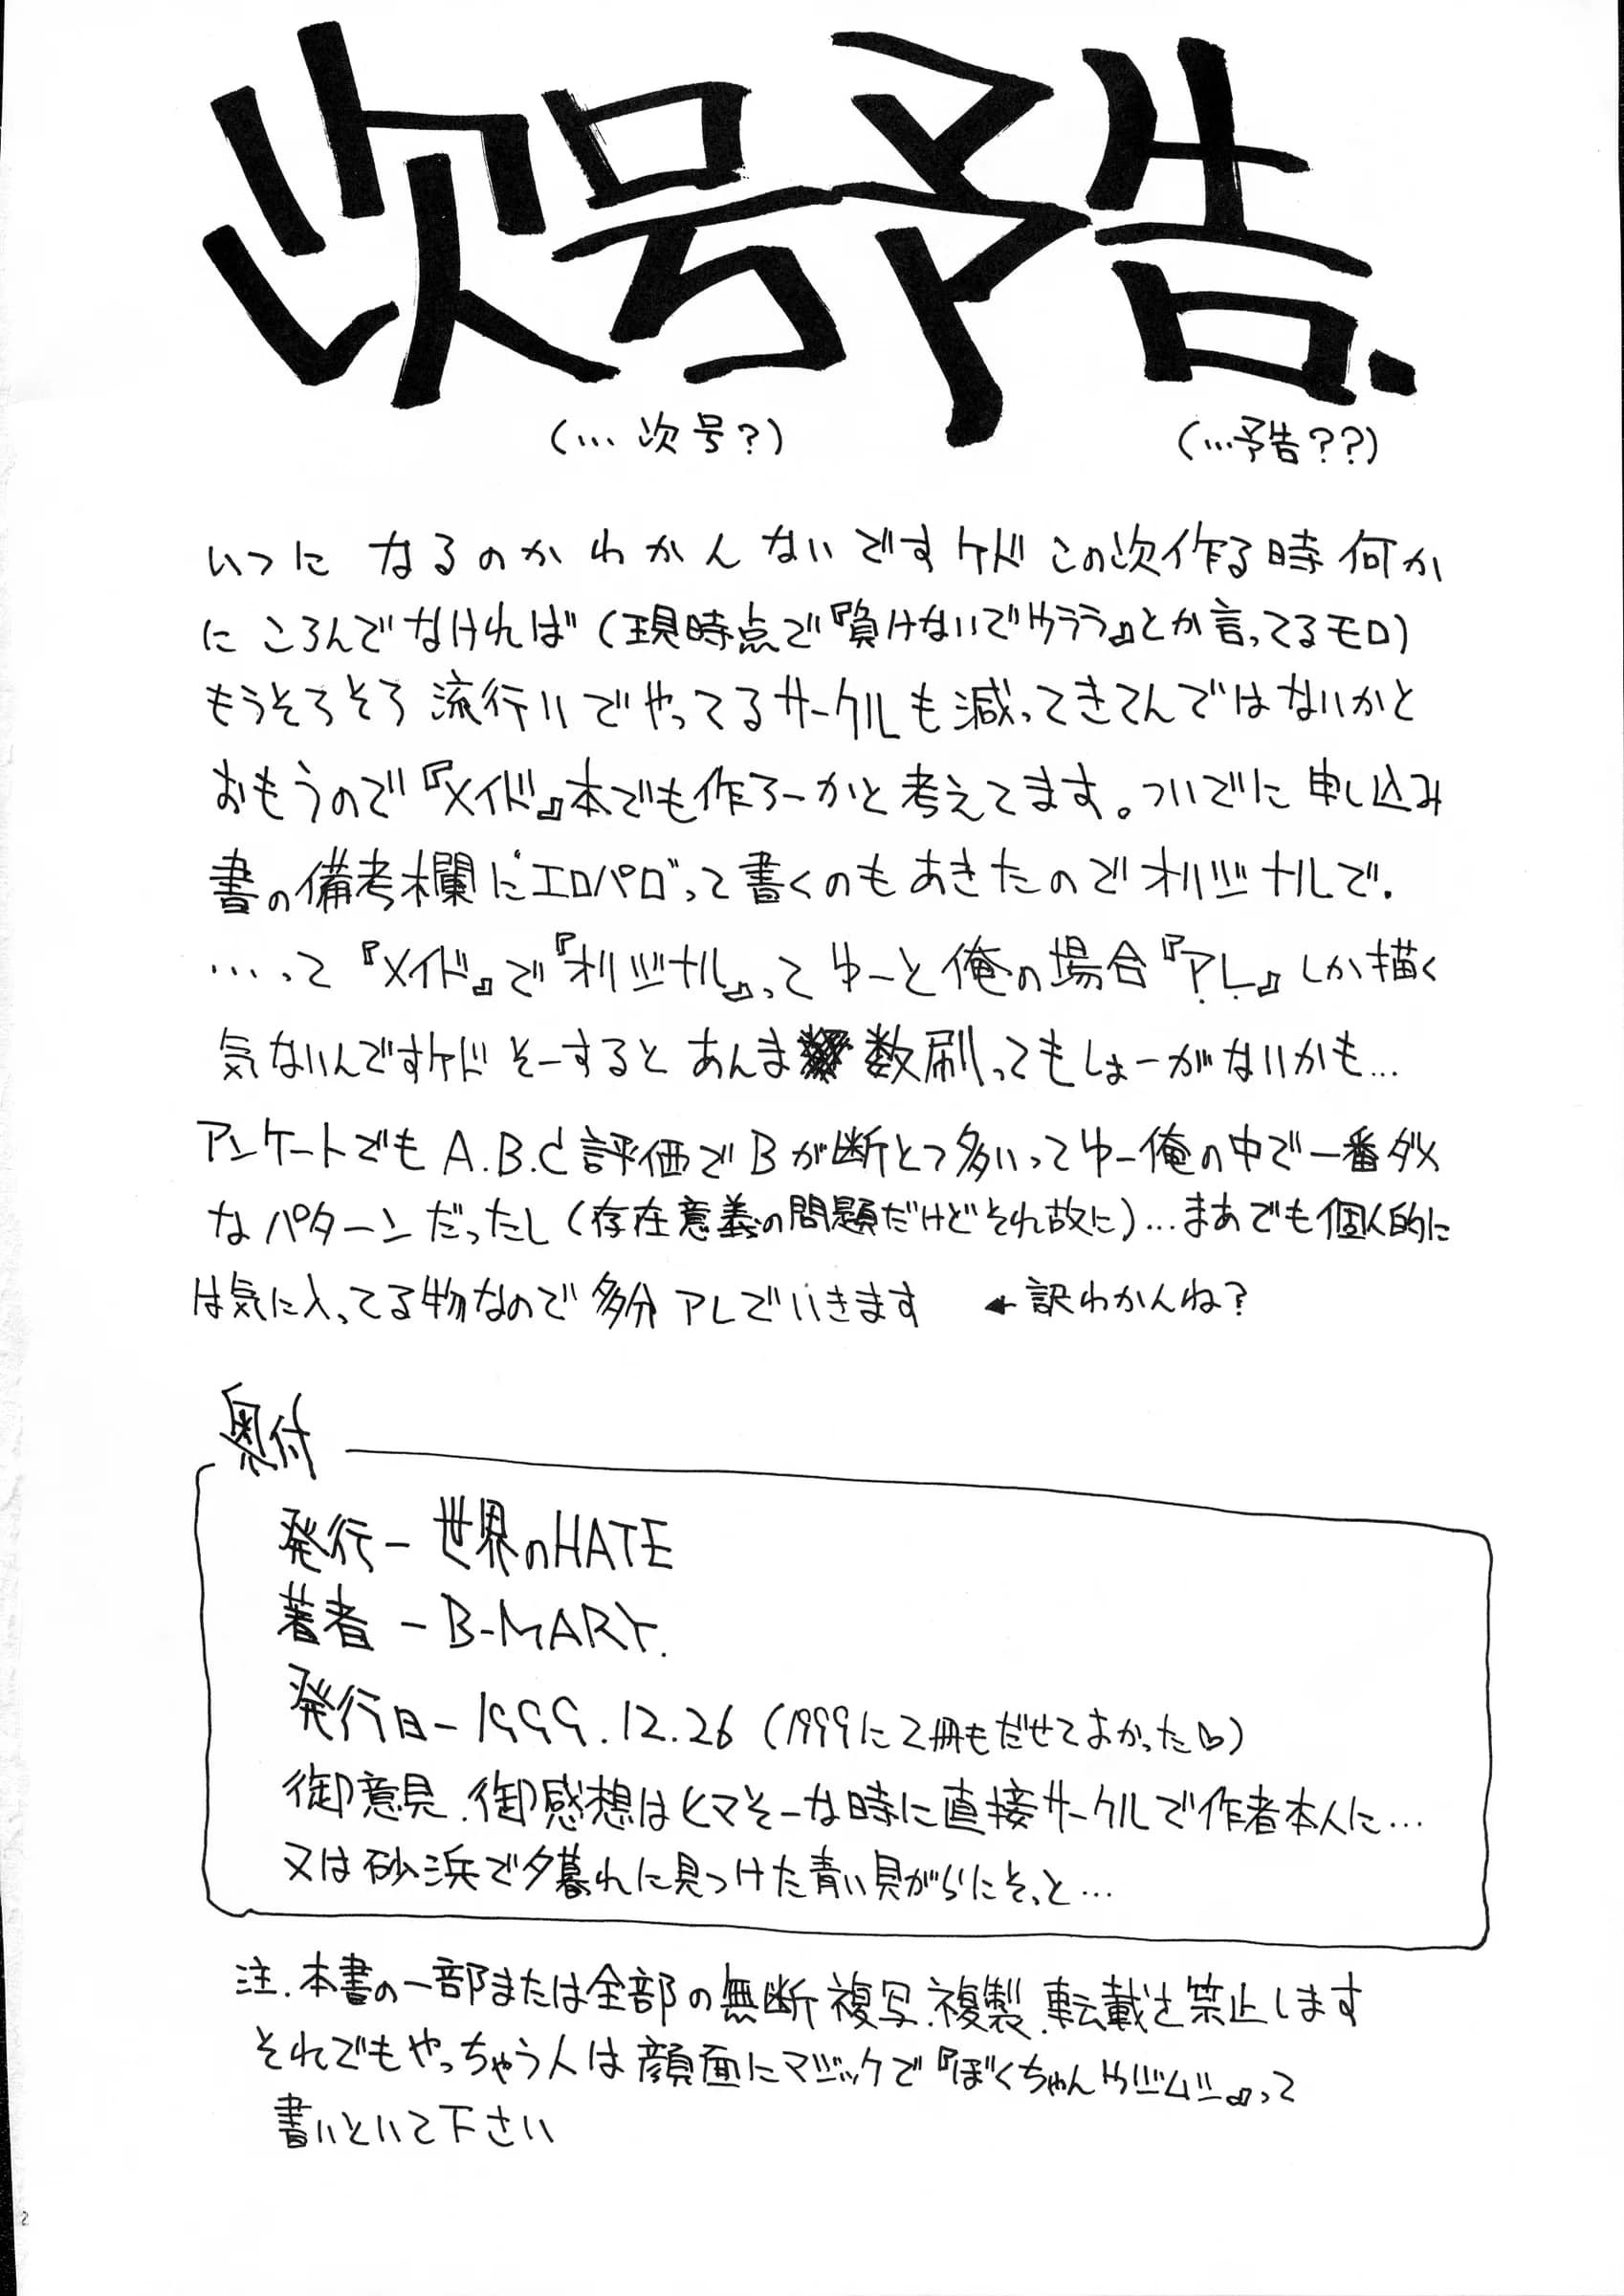 次号予告.
(…次号?) (…予告??)
いつに なるのかわかんないですケド この次作る時何か
に ころんでなければ (現時点で『負けないでウララ』とか言ってるモロ)
もうそろそろ流行りでやってるサークルも減ってきてんではないかと
おもうので『メイド』本でも作ろーかと考えてます。ついでに申し込み
書の備考欄に"エロパロ"って書くのもあきたのでオリジナルで.
…って『メイド』で『オリジナル』ってゆーと俺の場合『アレ』しか描く
気ないんですケド そーすると あんま 数刷ってもしょーがないかも…
アンケートでも A.B.C評価でBが断とつ多いってゆー俺の中で一番ダメ
なパターンだったし (存在意義の問題だけどそれ故に)…まあでも個人的に
は気に入ってる物なので多分アレでいきます ←訳わかんね?
奥付
発行ー世界のHATE
著者 ーB-MARY.
発行日ー1999.12.26 (1999に2冊もだせてよかった♡)
御意見.御感想はヒマそーな時に直接サークルで作者本人に…
又は砂浜で夕暮れに見つけた青い貝がらにそっと…
注.本書の一部または全部の無断複写.複製.転載を禁止します
それでもやっちゃう人は顔面にマジックで『ぼくちゃん
って
書いといて下さい
2